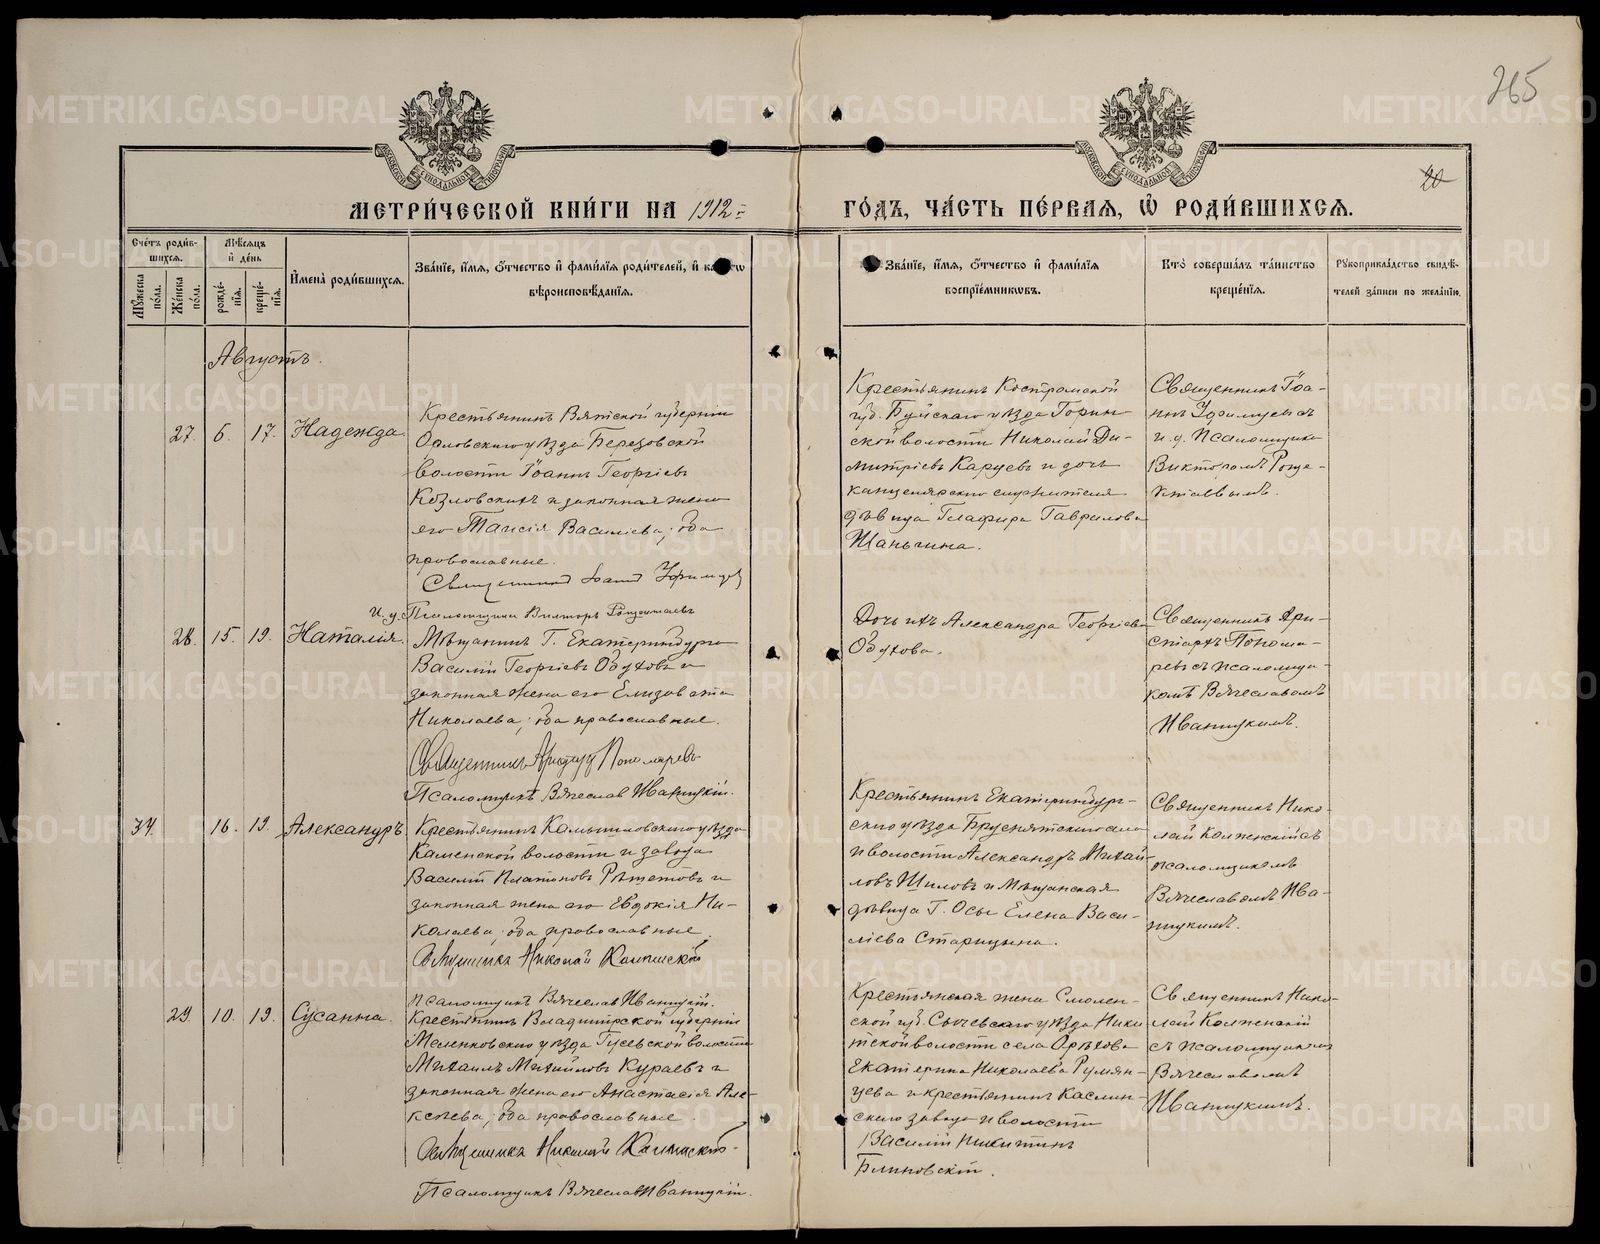 265
20
МОСКОВСКОЙ СѴНОДАЛЬНОЙ ТИПОГРАФІИ
МОСКОВСКОЙ СѴНОДАЛЬНОЙ ТИПОГРАФІИ
МЕТРИ́ЧЕСКОЙ КНИ́ГИ НА 1912 =
ГО́ДЪ, ЧА́СТЬ ПЕ́РВАЯ, Ѡ҆ РОДИ́ВШИХСЯ.
Сче́тъ роди́в-
шихся.
Му́жеска по́ла.
Же́нска по́ла.
Мѣ́сяцъ
и҆ де́нь
рожде́-
нїя.
креще́-
нїя.
И҆мена̀ роди́вшихся.
Зва́нїе, и҆́мя, ѻ҆́тчество и҆ фами́лїя роди́телей, и҆
вѣроисповѣ́данїя.
Зва́нїе, и҆́мя, ѻ҆́тчество и҆ фами́лїя
воспрїе́мниковъ.
Кто̀ соверша́лъ та́инство
креще́нїя.
Рꙋкоприкла́дство свидѣ́-
телей за́писи по жела́нїю.
Августъ.
27. 6. 17. Надежда
Крестьянинъ Вятской губерніи
Орловскаго уѣзда Березовской
волости Іоаннъ Георгіевъ
Козловскихъ и законная жена
его Таисія Василіева, оба
православные.
Священникъ Іоаннъ Уфимцев
И. д. Псаломщика Викторъ
Крестьянинъ Костромской
губ. Буйскаго уѣзда Горин
ской волости Николай Ди-
митріевъ Каруевъ и дочь
канцелярскаго служителя
дѣвица Глафира Гаврилова
Шаньгина.
Священникъ Іоа-
ннъ Уфимцевъ съ
и. д. псаломщика
Викторомъ
28. 15. 19. Наталія.
Мѣщанинъ Г. Екатеринбурга
Василій Георгіевъ Обуховъ и
законная жена его Елизавета
Николаева, оба православные.
Священникъ Аристархъ Пономаревъ
Псаломщикъ Вячеславъ Иваницкій.
Дочь ихъ Александра Георгіева
Обухова.
Священникъ Ари-
стархъ Понома-
ревъ съ псаломщи-
комъ Вячеславомъ
Иваницкимъ.
34. 16. 19. Александръ
Крестьянинъ Камышловскаго уѣзда
Каменской волости и завода
Василій Платоновъ Рѣшетовъ и
законная жена его Евдокія Ни-
колаева, оба православные.
Священникъ Николай
Псаломщикъ Вячеславъ Иваницкій.
Крестьянинъ Екатеринбург-
скаго уѣзда Бруснятскаго села
и волости Александръ Михай-
ловъ Шиловъ и Мѣщанская
дѣвица Г. Осы Елена Васи-
ліева Старицына.
Священникъ Нико-
лай съ
псаломщикомъ
Вячеславомъ Ива-
ницкимъ.
29. 10. 19. Сусанна.
Крестьянинъ Владимірской губерніи
Меленковскаго уѣзда Гусевской волости
Михаилъ Михайловъ Кураевъ и
законная жена его Анастасія Але-
ксѣева, оба православные.
Священникъ Николай
Псаломщикъ Вячеславъ Иваницкій.
Крестьянская жена Смолен-
ской губ. Сычевскаго уѣзда Ники
тской волости села Орѣхова
Екатерина Николаева Румян-
цева и крестьянинъ Каслин-
скаго завода и волости
Василій Никитинъ
Блиновскій.
Священникъ Нико-
лай
съ псаломщикомъ
Вячеславомъ
Иваницкимъ.
METRIKI.GASO-URAL.RU